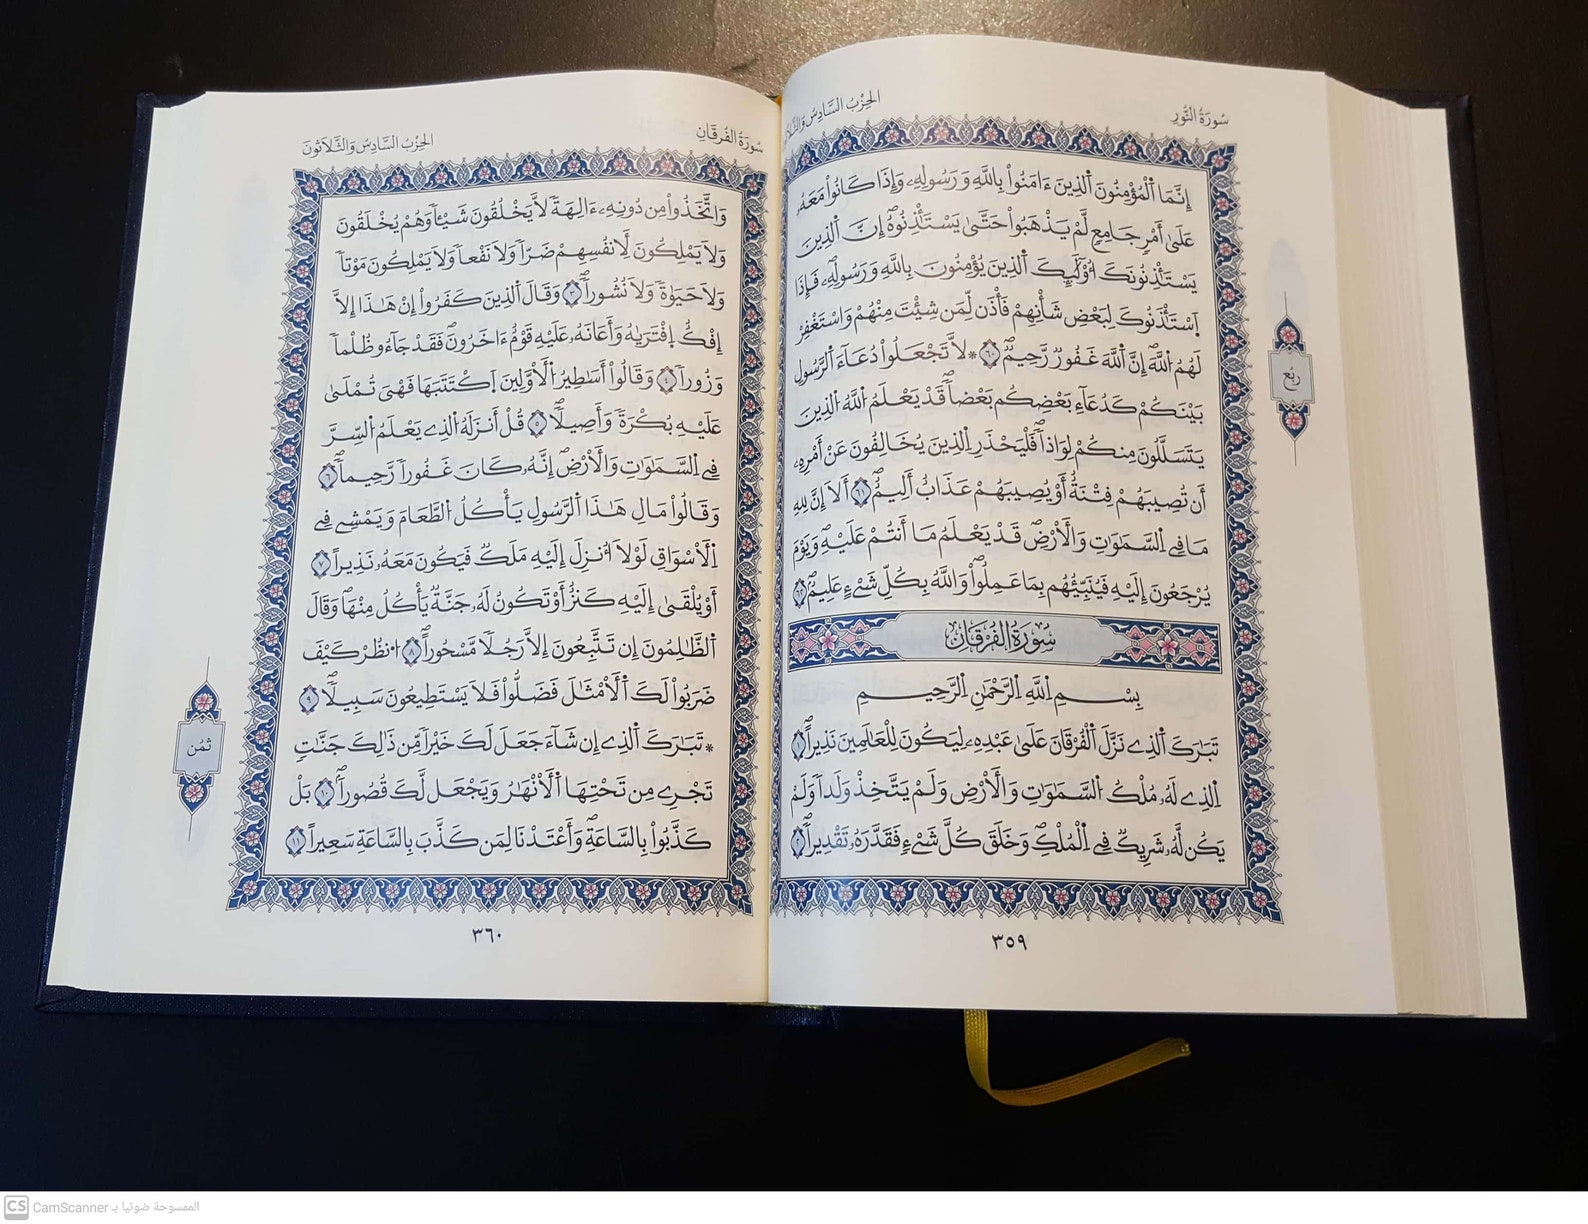 سُورَةُ النُّورِ
الحِزْبُ السَّادِسُ وَالثَّلَاثُونَ
إِنَّمَا اَ۬لْمُؤْمِنُونَ اَ۬لذِينَ ءَامَنُواْ بِاللَّهِ وَرَسُولِهِۦ وَإِذَا كَانُواْ مَعَهُۥ
عَلَىٰٓ أَمْرٖ جَامِعٖ لَّمْ يَذْهَبُواْ حَتَّىٰ يَسْتَـْٔذِنُوهُۖ إِنَّ اَ۬لذِينَ
يَسْتَـْٔذِنُونَكَ أُوْلَٰٓئِكَ اَ۬لذِينَ يُؤْمِنُونَ بِاللَّهِ وَرَسُولِهِۦۖ فَإِذَا
اَ۪سْتَـْٔذَنُوكَ لِبَعْضِ شَأْنِهِمْ فَأْذَن لِّمَن شِئْتَ مِنْهُمْ وَاسْتَغْفِرْ
لَهُمُ اُ۬للَّهَۖ إِنَّ اَ۬للَّهَ غَفُورٞ رَّحِيمٞۖ ٦٠ * لَّا تَجْعَلُواْ دُعَآءَ اَ۬لرَّسُولِ
بَيْنَكُمْ كَدُعَآءِ بَعْضِكُم بَعْضاٗۖ قَدْ يَعْلَمُ اُ۬للَّهُ اُ۬لذِينَ
يَتَسَلَّلُونَ مِنكُمْ لِوَاذاٗۖ فَلْيَحْذَرِ اِ۬لذِينَ يُخَالِفُونَ عَنْ أَمْرِهِۦٓ
أَن تُصِيبَهُمْ فِتْنَةٌ أَوْ يُصِيبَهُمْ عَذَابٌ أَلِيمٌۖ ٦١ أَلَآ إِنَّ لِلهِ
مَا فِے اِ۬لسَّمَٰوَٰتِ وَالْأَرْضِۖ قَدْ يَعْلَمُ مَآ أَنتُمْ عَلَيْهِۖ وَيَوْمَ
يُرْجَعُونَ إِلَيْهِ فَيُنَبِّئُهُم بِمَا عَمِلُواْۖ وَاللَّهُ بِكُلِّ شَےْءٍ عَلِيمٞۖ ٦٢
سُورَةُ الفُرْقَانِ
بِسْمِ اِ۬للَّهِ اِ۬لرَّحْمَٰنِ اِ۬لرَّحِيمِ
تَبَٰرَكَ اَ۬لذِے نَزَّلَ اَ۬لْفُرْقَانَ عَلَىٰ عَبْدِهِۦ لِيَكُونَ لِلْعَٰلَمِينَ نَذِيراًۖ ١
اِ۬لذِے لَهُۥ مُلْكُ اُ۬لسَّمَٰوَٰتِ وَالْأَرْضِ وَلَمْ يَتَّخِذْ وَلَداٗ وَلَمْ
يَكُن لَّهُۥ شَرِيكٞ فِے اِ۬لْمُلْكِۖ وَخَلَقَ كُلَّ شَےْءٖ فَقَدَّرَهُۥ تَقْدِيراٗۖ ٢
٣٥٩
رُبُع
سُورَةُ الفُرْقَانِ
الحِزْبُ السَّادِسُ وَالثَّلَاثُونَ
وَاتَّخَذُواْ مِن دُونِهِۦٓ ءَالِهَةٗ لَّا يَخْلُقُونَ شَيْـٔاٗ وَهُمْ يُخْلَقُونَ
وَلَا يَمْلِكُونَ لِأَنفُسِهِمْ ضَرّاٗ وَلَا نَفْعاٗ وَلَا يَمْلِكُونَ مَوْتاٗ
وَلَا حَيَوٰةٗ وَلَا نُشُوراٗۖ ٣ وَقَالَ اَ۬لذِينَ كَفَرُوٓاْ إِنْ هَٰذَآ إِلَّآ
إِفْكٌ اِ۪فْتَر۪يٰهُ وَأَعَانَهُۥ عَلَيْهِ قَوْمٌ ءَاخَرُونَۖ فَقَدْ جَآءُو ظُلْماٗ
وَزُوراٗۖ ٤ وَقَالُوٓاْ أَسَٰطِيرُ اُ۬لْأَوَّلِينَ اَ۪كْتَتَبَهَا فَهْيَ تُمْلَىٰ
عَلَيْهِ بُكْرَةٗ وَأَصِيلاٗۖ ٥ قُلْ أَنزَلَهُ اُ۬لذِے يَعْلَمُ اُ۬لسِّرَّ
فِے اِ۬لسَّمَٰوَٰتِ وَالْأَرْضِۖ إِنَّهُۥ كَانَ غَفُوراٗ رَّحِيماٗۖ ٦
وَقَالُواْ مَالِ هَٰذَا اَ۬لرَّسُولِ يَأْكُلُ اُ۬لطَّعَامَ وَيَمْشِے فِے
اِ۬لْأَسْوَاقِ لَوْلَآ أُنزِلَ إِلَيْهِ مَلَكٞ فَيَكُونَ مَعَهُۥ نَذِيراً ٧
أَوْ يُلْقَىٰٓ إِلَيْهِ كَنزٌ أَوْ تَكُونُ لَهُۥ جَنَّةٞ يَأْكُلُ مِنْهَاۖ وَقَالَ
اَ۬لظَّٰلِمُونَ إِن تَتَّبِعُونَ إِلَّا رَجُلاٗ مَّسْحُوراًۖ ٨ اُ۟نظُرْ كَيْفَ
ضَرَبُواْ لَكَ اَ۬لْأَمْثَٰلَ فَضَلُّواْ فَلَا يَسْتَطِيعُونَ سَبِيلاٗۖ ٩
* تَبَٰرَكَ اَ۬لذِےٓ إِن شَآءَ جَعَلَ لَكَ خَيْراٗ مِّن ذَٰلِكَ جَنَّٰتٖ
تَجْرِے مِن تَحْتِهَا اَ۬لْأَنْهَٰرُ وَيَجْعَل لَّكَ قُصُوراٗۖ ١٠ بَلْ
كَذَّبُواْ بِالسَّاعَةِۖ وَأَعْتَدْنَا لِمَن كَذَّبَ بِالسَّاعَةِ سَعِيراًۖ ١١
٣٦٠
ثُمُن
CS CamScanner الممسوحة ضوئيا بـ